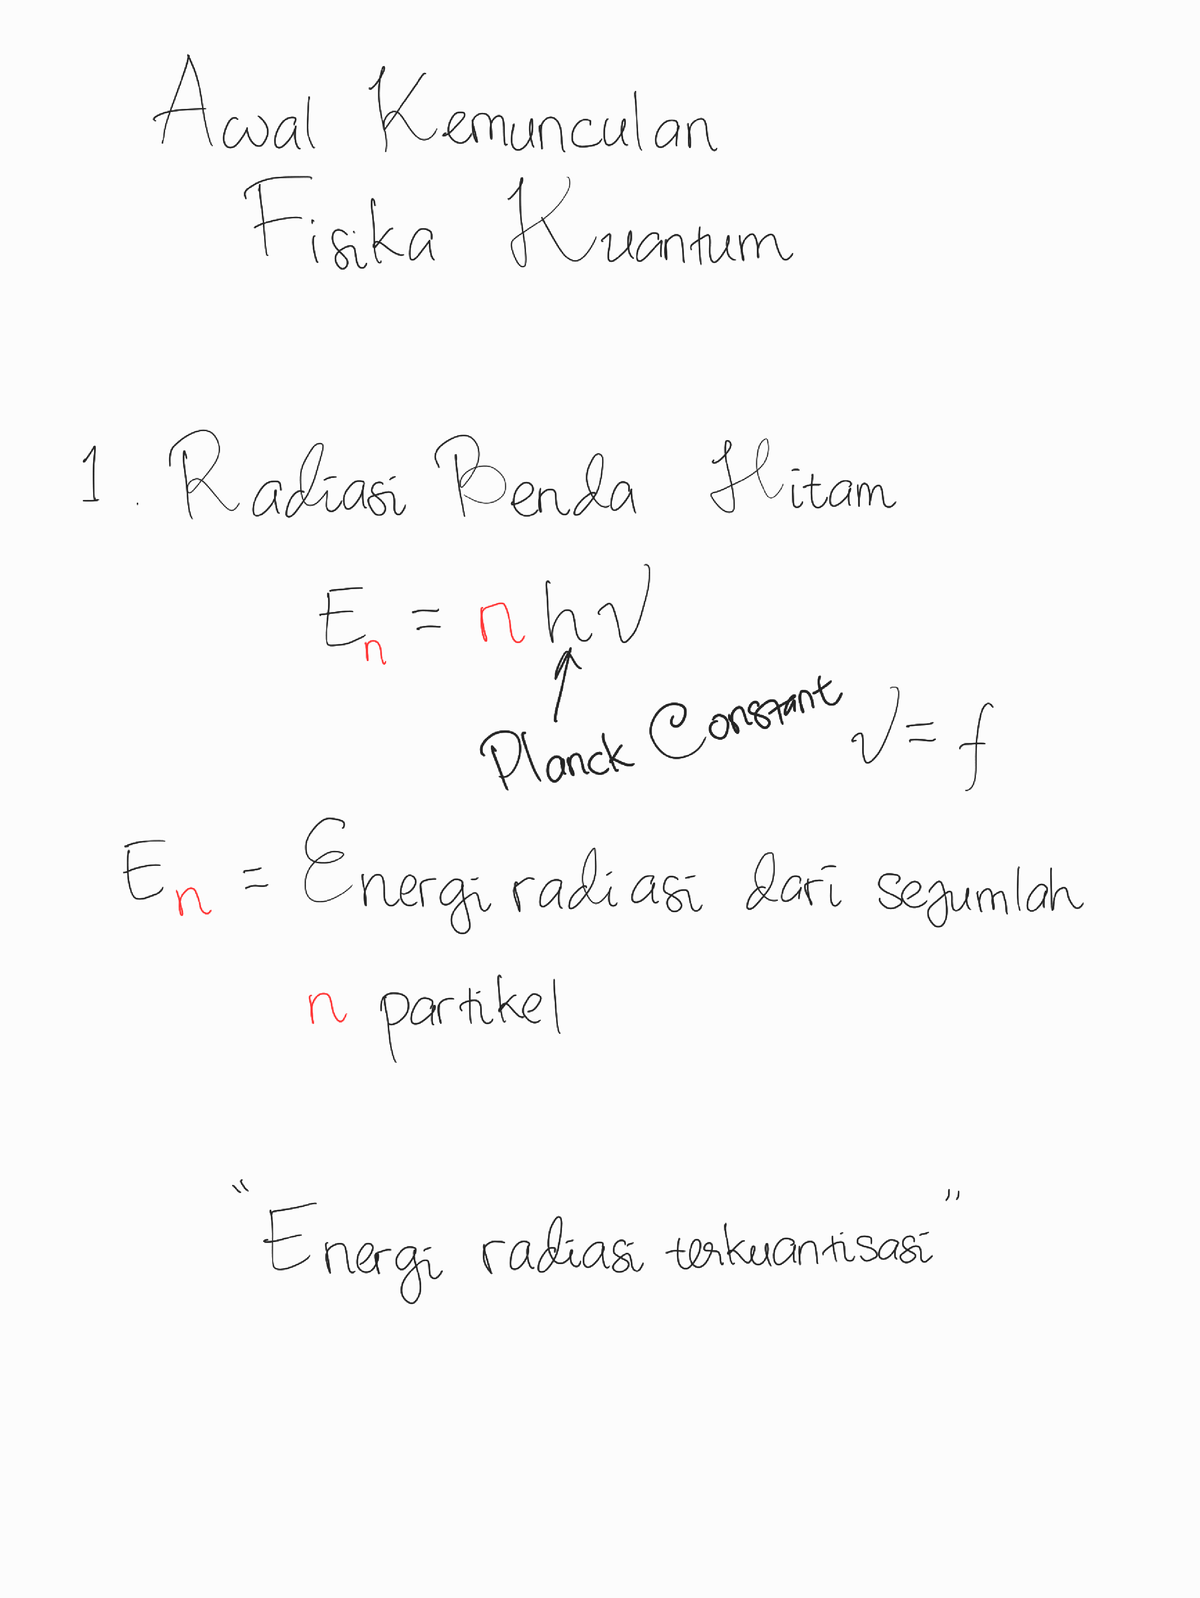 Awal Kemunculan
Fisika Kuantum
1. Radiasi Benda Hitam
Eₙ = nhν
Planck Constant
ν = f
Eₙ = Energi radiasi dari sejumlah
n partikel
"Energi radiasi terkuantisasi"